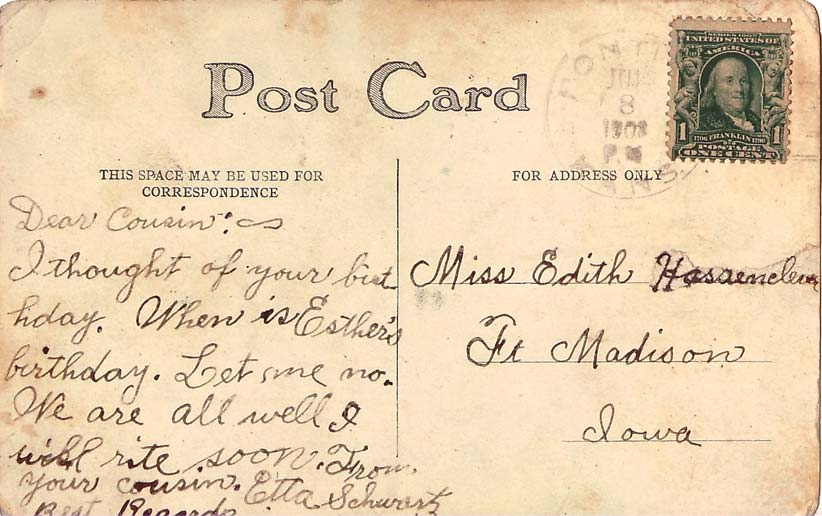 Post Card
THIS SPACE MAY BE USED FOR
CORRESPONDENCE
FOR ADDRESS ONLY
SERIES 1902
UNITED STATES OF
AMERICA
1706 FRANKLIN 1790
1 1
POSTAGE
ONE CENT
8
P.M
Dear Cousin:
I thought of your birt
hday. When is Esther's
birthday. Let me no.
We are all well I
will rite soon. From
your cousin. Etta Schwartz
Best Regards
Miss Edith
Ft Madison
Iowa